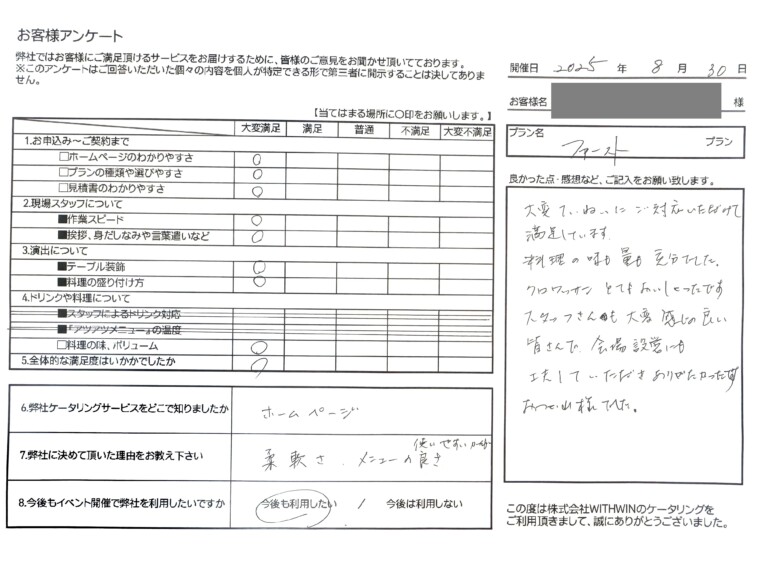 お客様アンケート
弊社ではお客様にご満足頂けるサービスをお届けするために、皆様のご意見をお聞かせ頂いております。
※このアンケートはご回答いただいた個々の内容を個人が特定できる形で第三者に開示することは決してありま
せん。
【当てはまる場所に〇印をお願いします。】
大変満足 満足 普通 不満足 大変不満足
1.お申込み～ご契約まで
□ホームページのわかりやすさ 〇
□プランの種類や選びやすさ 〇
□見積書のわかりやすさ 〇
2.現場スタッフについて
■作業スピード 〇
■挨拶、身だしなみや言葉遣いなど 〇
3.演出について
■テーブル装飾 〇
■料理の盛り付け方 〇
4.ドリンクや料理について
■スタッフによるドリンク対応
■『アツアツメニュー』の温度
□料理の味、ボリューム 〇
5.全体的な満足度はいかかでしたか 〇
6.弊社ケータリングサービスをどこで知りましたか ホームページ
7.弊社に決めて頂いた理由をお教え下さい 柔軟さ、メニューの良さ
使いやすい
8.今後もイベント開催で弊社を利用したいですか 今後も利用したい / 今後は利用しない
開催日 2025 年 8 月 30 日
お客様名 様
プラン名
ファースト プラン
良かった点・感想など、ご記入をお願い致します。
大変ていねいにご対応いただけて
満足しています
料理の味も量も充分でした。
クロワッサン とてもおいしかったです
スタッフさんも大変感じの良い
皆さんで、会場設営にも
工夫していただきありがたかったです
おつかれ様でした。
この度は株式会社WITHWINのケータリングを
ご利用頂きまして、誠にありがとうございました。